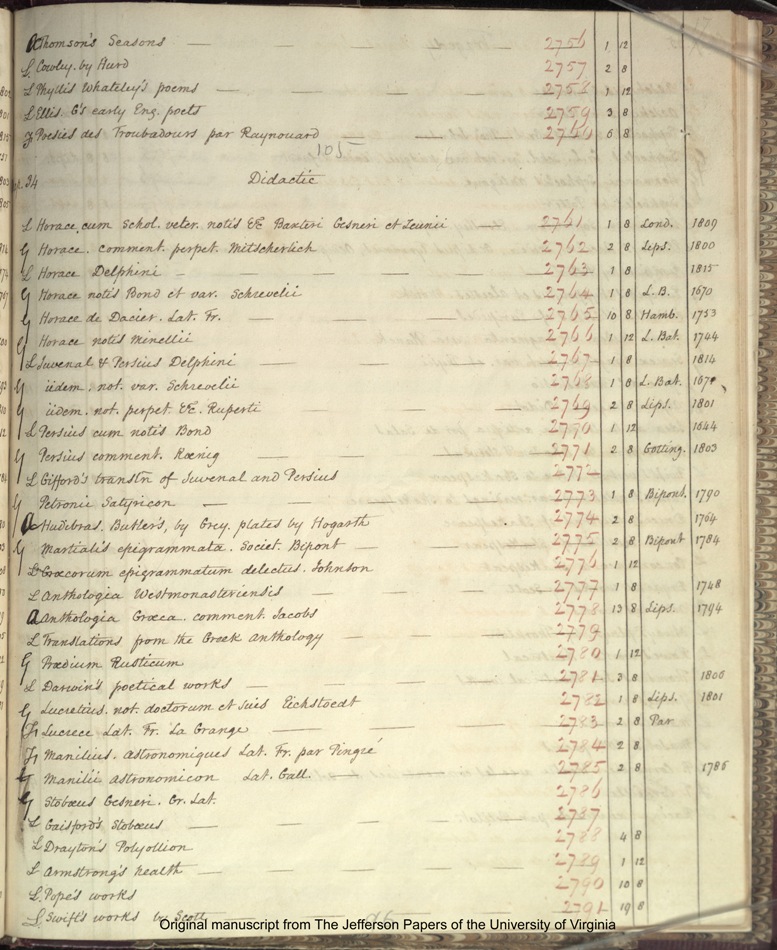 a Thomson's Seasons — 2756 1 12
L Cowley. by Hurd 2757 2 8
L Phyllis Whateley's poems — 2758 1 12
L Ellis. G's early Eng. poets 2759 3 8
Poesies des Troubadours par Raynouard — 2760 6 8
105
34 Didactic
L Horace, cum Schol. veter. notis &c Baxteri Gesneri et Zeunii — 2761 1 8 Lond. 1809
G Horace. comment. perpet. Mitscherlich 2762 2 8 Lips. 1800
L Horace Delphini — 2763 1 8 1815
G Horace notis Bond et var. Schrevelii 2764 1 8 L.B. 1670
G Horace de Dacier. Lat. Fr. — 2765 10 8 Hamb. 1753
G Horace notis Minellii 2766 1 12 L. Bat. 1744
L Juvenal & Persius Delphini — 2767 1 8 1814
G iidem. not. var. Schrevelii 2768 1 8 L. Bat.
G iidem. not. perpet &c. Ruperti — 2769 2 8 Lips. 1801
L Persius cum notis Bond 2770 1 12 1644
G Persius comment. Kœnig — 2771 2 8 Gotting. 1803
L Gifford's transln of Juvenal and Persius 2772
G Petronii Satyricon — 2773 1 8 Bipont. 1790
a Hudibras. Butler's, by Grey. plates by Hogarth 2774 2 8 1764
G Martialis epigrammata. Societ. Bipont — 2775 2 8 Bipont 1784
Græcorum epigrammatum delectus. Johnson 2776 1 12
L Anthologia Westmonasteriensis — 2777 1 8 1748
a Anthologia Græca. comment. Jacobs 2778 13 8 Lips. 1794
L Translations from the Greek Anthology — 2779
G Prædium Rusticum 2780 1 12
L Darwin's poetical works — 2781 3 8 1806
G Lucretius. not. doctorum et suis Eichstoedt 2782 1 8 Lips. 1801
Fr Lucrece Lat. Fr. La Grange — 2783 2 8 Par
Fr Manilius. Astronomiques Lat. Fr. par Pingré 2784 2 8
G Manilii Astronomicon Lat. Gall. — 2785 2 8 1786
G Stobœus Gesneri. Gr. Lat. 2786
L Gaisford's Stobœus — 2787
L Drayton's Polyolbion 2788 4 8
L Armstrong's health — 2789 1 12
L Pope's works 2790 10 8
L Swift's works by Scott — 2791 19 8
Original manuscript from The Jefferson Papers of the University of Virginia